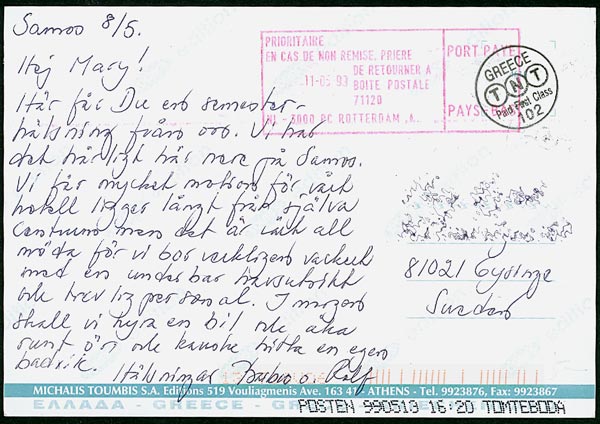 Samos 8/5.
Hej Mary!
Här får Du en semester-
hälsning från oss. Vi har
det härligt här nere på Samos.
Vi får mycket motion för vårt
hotell ligger långt från själva
centrum men det är värt all
möda för vi bor verkligen vackert
med en underbar havsutsikt
och trevlig personal. I morgon
skall vi hyra en bil och åka
runt ön och kanske hitta en egen
badvik.
Hälsningar Barbro o. Rolf
PRIORITAIRE
EN CAS DE NON REMISE, PRIERE
DE RETOURNER A
11-05 99 BOITE POSTALE
71120
NL - 3000 PC ROTTERDAM
PORT PAYE
PAYS-BAS
GREECE
TNT
Paid First Class
102
81021 Gysinge
Sweden
MICHALIS TOUMBIS S.A. Editions 519 Vouliagmenis Ave. 163 41 - ATHENS - Tel. 9923876, Fax: 9923867
ΕΛΛΑΔΑ - GREECE - GREECE
POSTEN 990513 16:20 TOMTEBODA